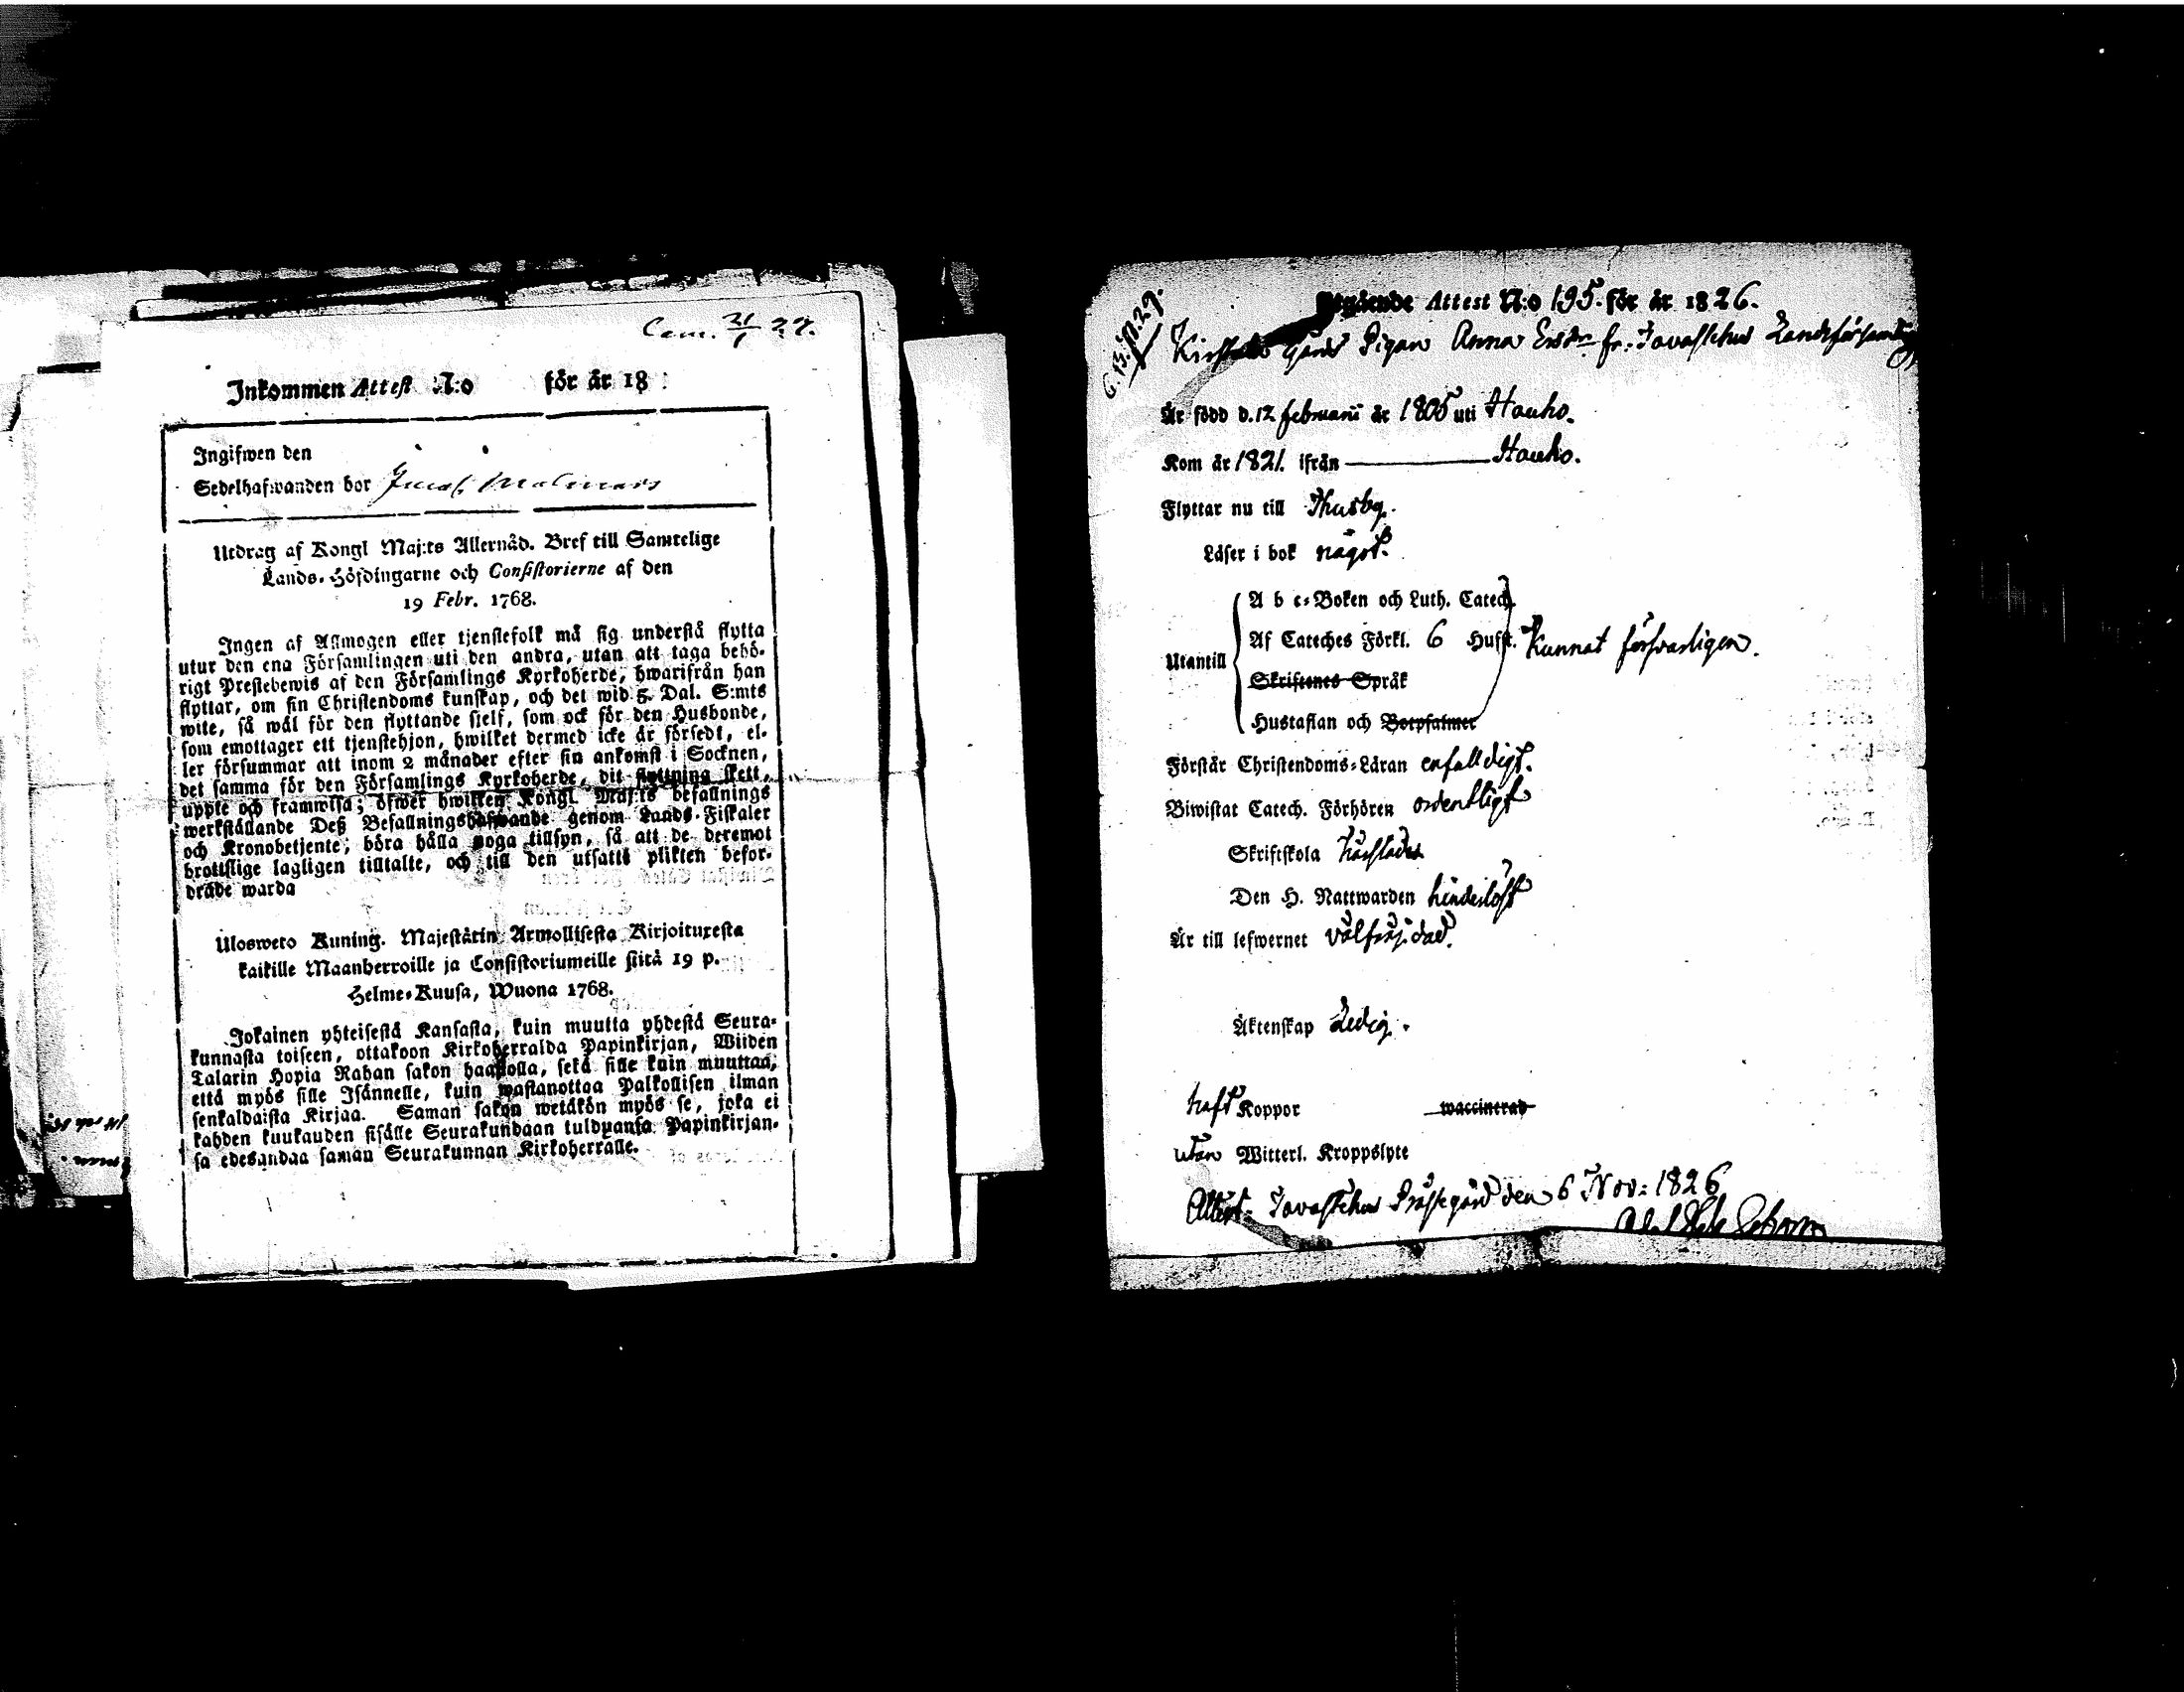 Inkommen Attest N:o för år 18
Ingifwen den
Sedelhafwanden bor
Utdrag af Kongl Maj:ts Allernåd. Bref till Samtelige
Lands-Höfdingarne och Consistorierne af den
19 Febr. 1768.
Ingen af Allmogen eller tjenstefolk må sig understå flytta
utur den ena Församlingen uti den andra, utan att taga behö-
rigt Prestebewis af den Församlings Kyrkoherde, hwarifrån han
flyttar, om sin Christendoms kunskap, och det wid 5. Dal. S:mts
wite, så wäl för den flyttande sielf, som ock för den Husbonde,
som emottager ett tjenstehjon, hwilket dermed icke är försedt, el-
ler försummar att inom 2 månader efter sin ankomst i Socknen,
det samma för den Församlings Kyrkoherde, dit flyttning skett,
uppte och framwisa; öfwer hwilken Kongl. Maj:ts befallnings
werkställande Deß Befallningshafwande genom Lands-Fiskaler
och Kronobetjente, böra hålla noga tillsyn, så att de deremot
brottslige lagligen tilltalte, och till den utsatte plikten befor-
drade warda
Ulosweto Kuning. Majestätin Armollisesta Kirjoituxesta
kaikille Maanherroille ja Consistoriumeille siitä 19 p.
Helme-Kuusa, Wuona 1768.
Jokainen yhteisestä Kansasta, kuin muutta yhdestä Seura-
kunnasta toiseen, ottakoon Kirkoherralda Papinkirjan, Wiiden
Talarin Hopia Rahan sakon haastolla, sekä sille kuin muuttaa,
että myös sille Isännelle, kuin wastanottaa Palkollisen ilman
senkaldaista Kirjaa. Saman sakon wetäkön myös se, joka ei
kahden kuukauden sisälle Seurakundaan tulduansa Papinkirjan-
sa edesandaa saman Seurakunnan Kirkoherralle.
Attest N:o 195. för år 1826.
Pigan Anna Ersdr fr: Tavastehus Landsförsamling
Är född d. 12 februarii år 1805 uti Hauho.
Kom år 1821. ifrån Hauho.
Flyttar nu till Thusby.
Läser i bok något.
Utantill
A b c-Boken och Luth. Catech.
Af Cateches Förkl. 6 Hufst. Kunnat försvarligen.
Skriftenes Språk
Hustaflan och Botpsalmer
Förstår Christendoms-Läran enfaldigt.
Biwistat Catech. Förhören ordentligt
Skriftskola
Den H. Nattwarden hinderlöst
Är till lefwernet välfräjdad.
Äktenskap Ledig.
haft Koppor waccinerad
utan Witterl. Kroppslyte
Attest. Tavastehus Prästegård den 6 Nov: 1826